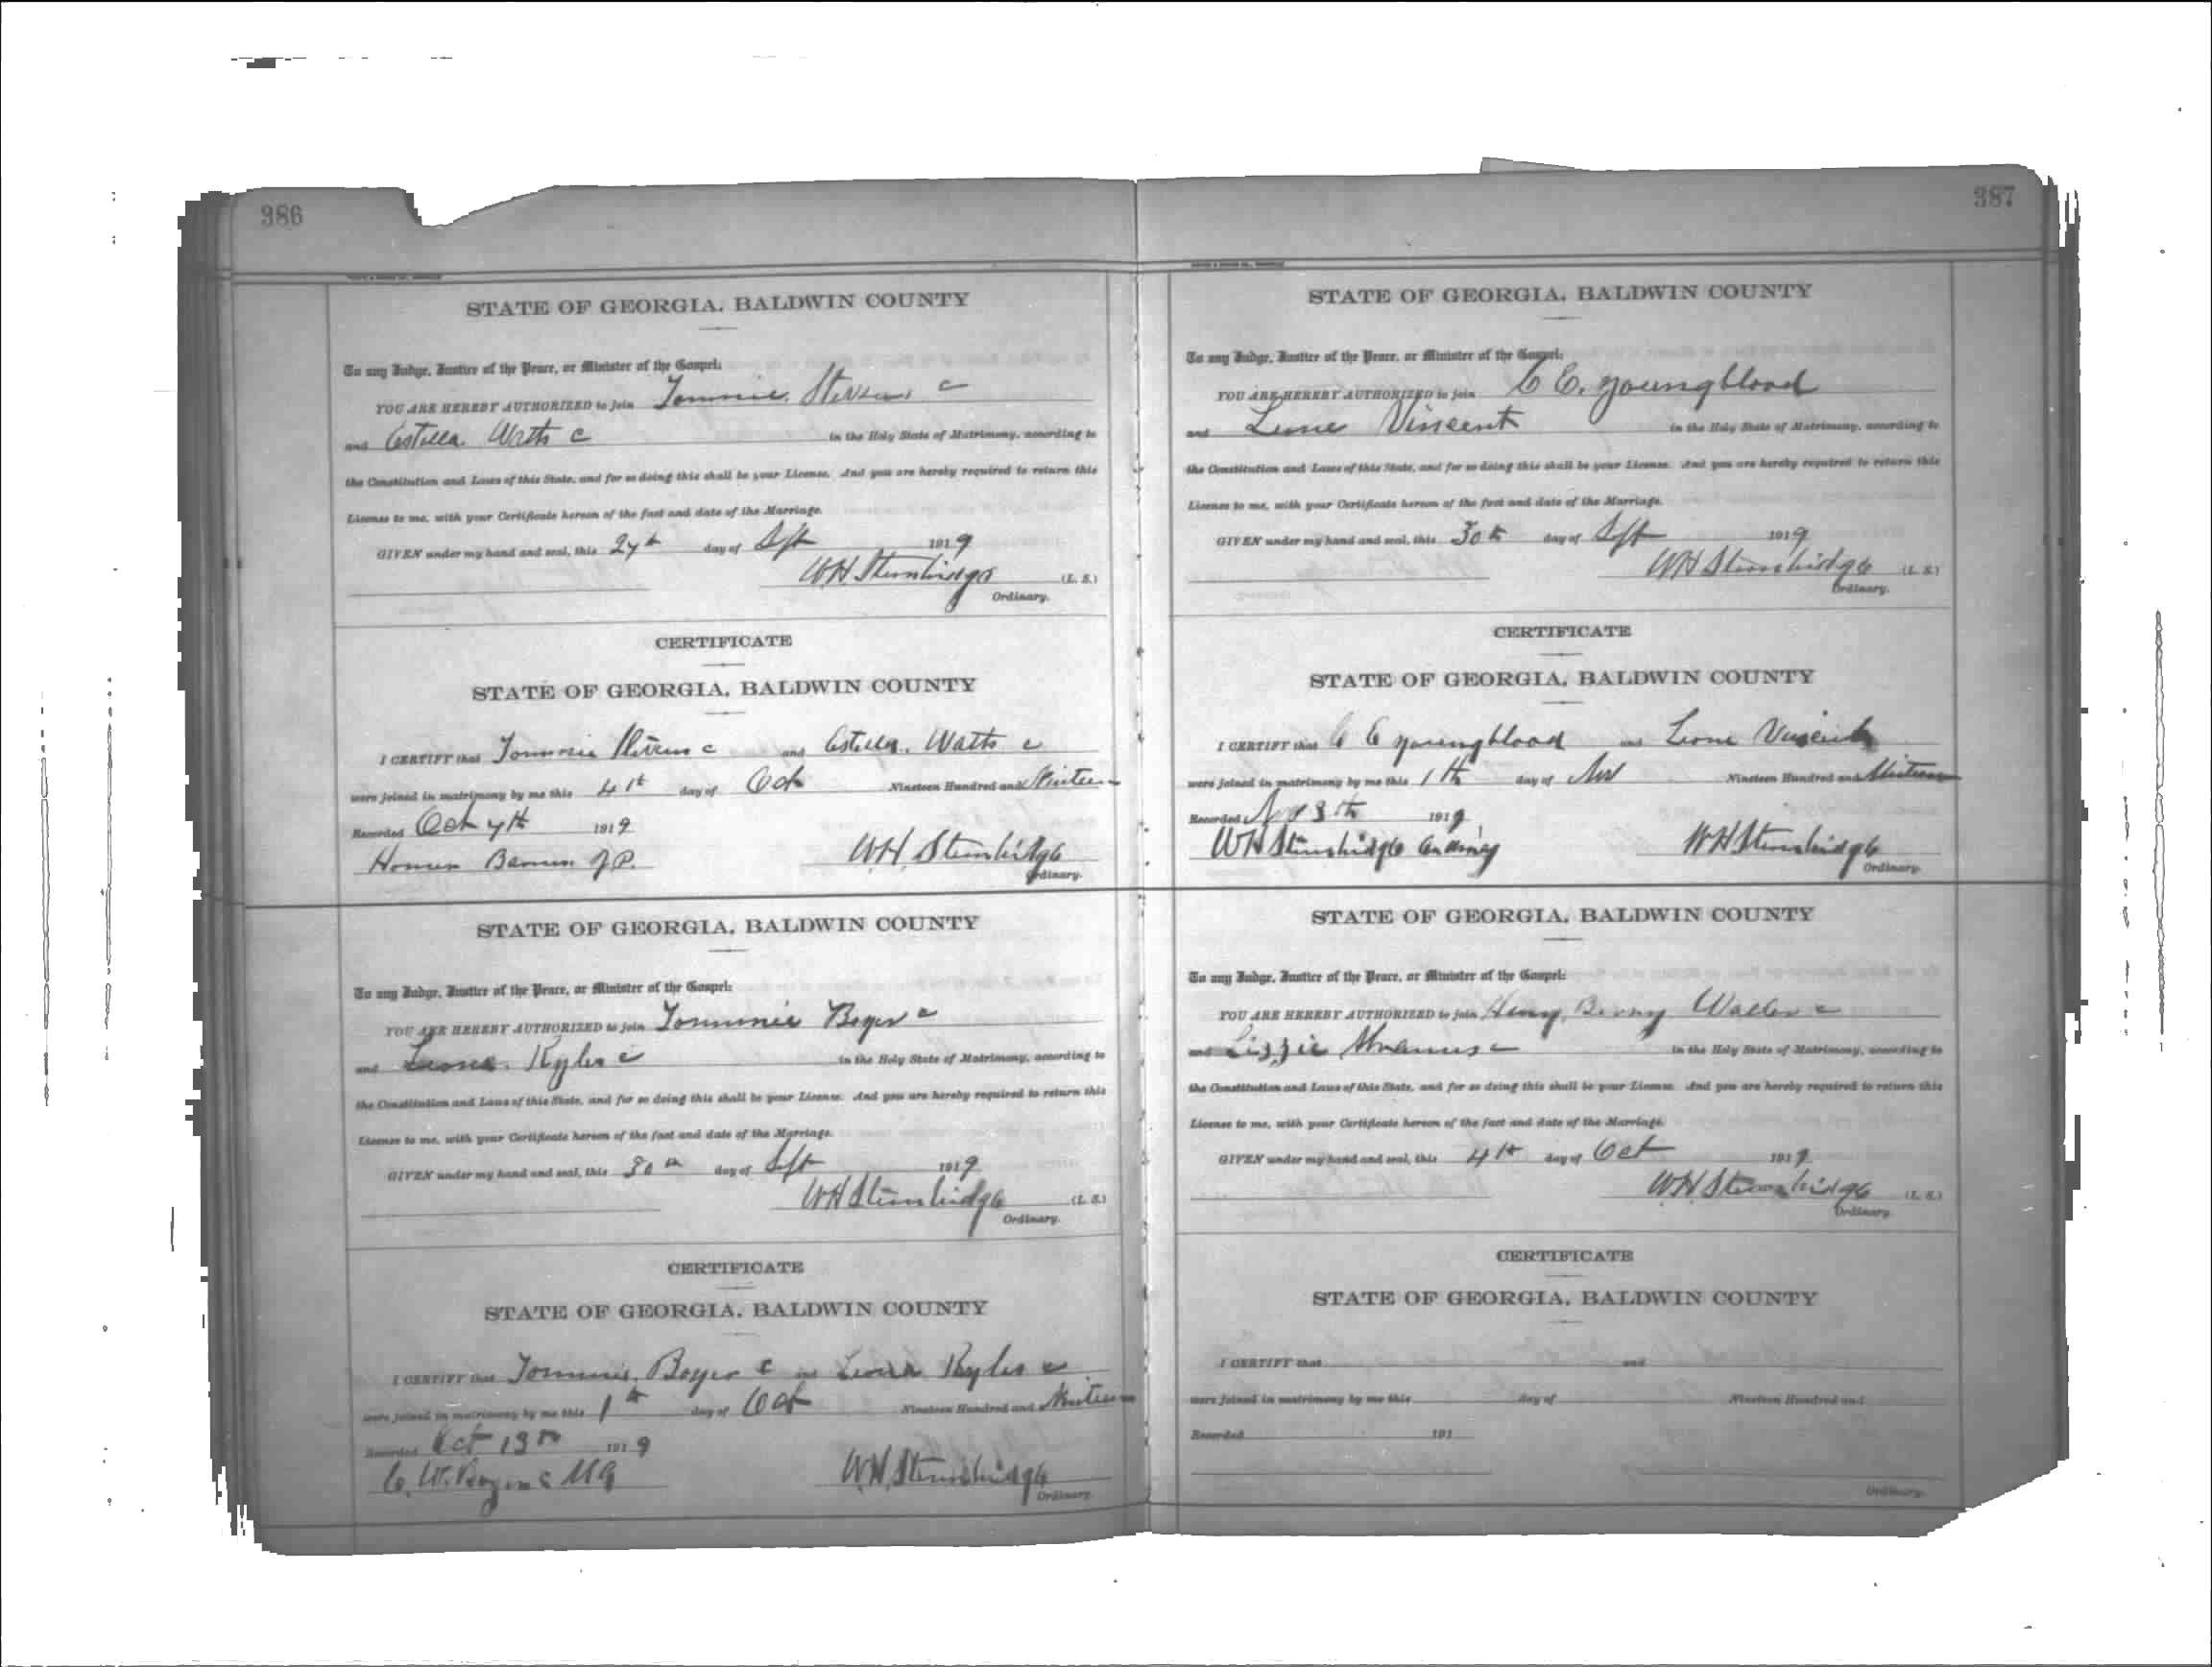 386
STATE OF GEORGIA, BALDWIN COUNTY
To any Judge, Justice of the Peace, or Minister of the Gospel:
YOU ARE HEREBY AUTHORIZED to join Tommie Stevens c
and Estella Watts c in the Holy State of Matrimony, according to
the Constitution and Laws of this State, and for so doing this shall be your License. And you are hereby required to return this
License to me, with your Certificate hereon of the fact and date of the Marriage.
GIVEN under my hand and seal, this 27th day of Sept 1919
WH Stembridge (L. S.)
Ordinary.
CERTIFICATE
STATE OF GEORGIA, BALDWIN COUNTY
I CERTIFY that Tommie Stevens c and Estella Watts c
were joined in matrimony by me this 4th day of Oct Nineteen Hundred and Nineteen
Recorded Oct 7th 1919
Homer J.P. W.H. Stembridge
Ordinary.
STATE OF GEORGIA, BALDWIN COUNTY
To any Judge, Justice of the Peace, or Minister of the Gospel:
YOU ARE HEREBY AUTHORIZED to join Tommie Boyer c
and Leona Kyler c in the Holy State of Matrimony, according to
the Constitution and Laws of this State, and for so doing this shall be your License. And you are hereby required to return this
License to me, with your Certificate hereon of the fact and date of the Marriage.
GIVEN under my hand and seal, this 30th day of Sept 1919
WH Stembridge (L. S.)
Ordinary.
CERTIFICATE
STATE OF GEORGIA, BALDWIN COUNTY
I CERTIFY that Tommie Boyer c and Leona Kyler c
were joined in matrimony by me this 1th day of Oct Nineteen Hundred and Nineteen
Recorded Oct 13th 1919
C. W. MG W.H. Stembridge
Ordinary.
387
STATE OF GEORGIA, BALDWIN COUNTY
To any Judge, Justice of the Peace, or Minister of the Gospel:
YOU ARE HEREBY AUTHORIZED to join C C. Youngblood
and Leone Vincent in the Holy State of Matrimony, according to
the Constitution and Laws of this State, and for so doing this shall be your License. And you are hereby required to return this
License to me, with your Certificate hereon of the fact and date of the Marriage.
GIVEN under my hand and seal, this 30th day of Sept 1919
WH Stembridge (L. S.)
Ordinary.
CERTIFICATE
STATE OF GEORGIA, BALDWIN COUNTY
I CERTIFY that C C Youngblood and Leone Vincent
were joined in matrimony by me this 1th day of Nov Nineteen Hundred and Nineteen
Recorded 1919
WH Stembridge Ordinary WH Stembridge
Ordinary.
STATE OF GEORGIA, BALDWIN COUNTY
To any Judge, Justice of the Peace, or Minister of the Gospel:
YOU ARE HEREBY AUTHORIZED to join Henry Waller c
and Lizzie c in the Holy State of Matrimony, according to
the Constitution and Laws of this State, and for so doing this shall be your License. And you are hereby required to return this
License to me, with your Certificate hereon of the fact and date of the Marriage.
GIVEN under my hand and seal, this 4th day of Oct 1919
WH Stembridge (L. S.)
Ordinary.
CERTIFICATE
STATE OF GEORGIA, BALDWIN COUNTY
I CERTIFY that and
were joined in matrimony by me this day of Nineteen Hundred and
Recorded 191
Ordinary.